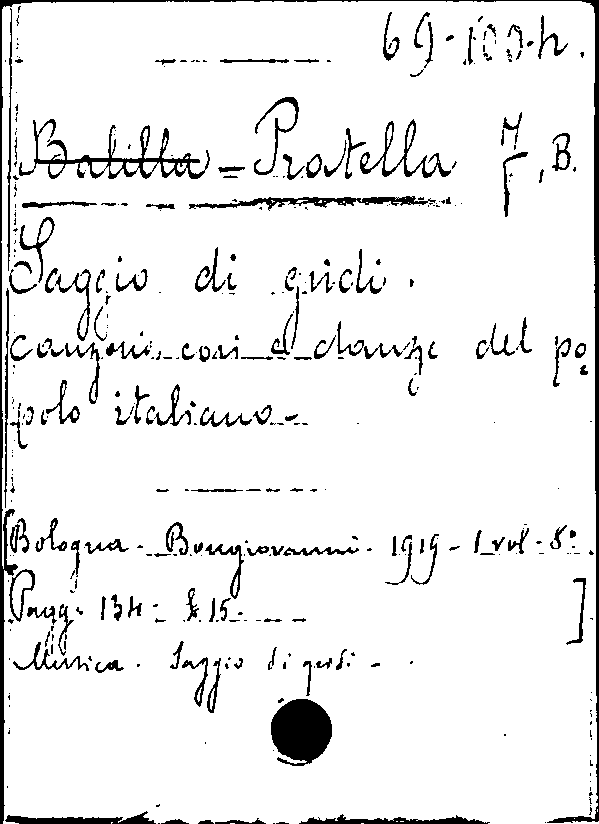 69-100.h.
Balilla - Pratella F, B.
Saggio di gridi.
canzoni, cori e danze del po=
polo italiano -
[Bologna. Bongiovanni. 1919 - 1 vol. 8º.
Pagg. 134 - £ 15. ]
Musica. Saggio di gridi -